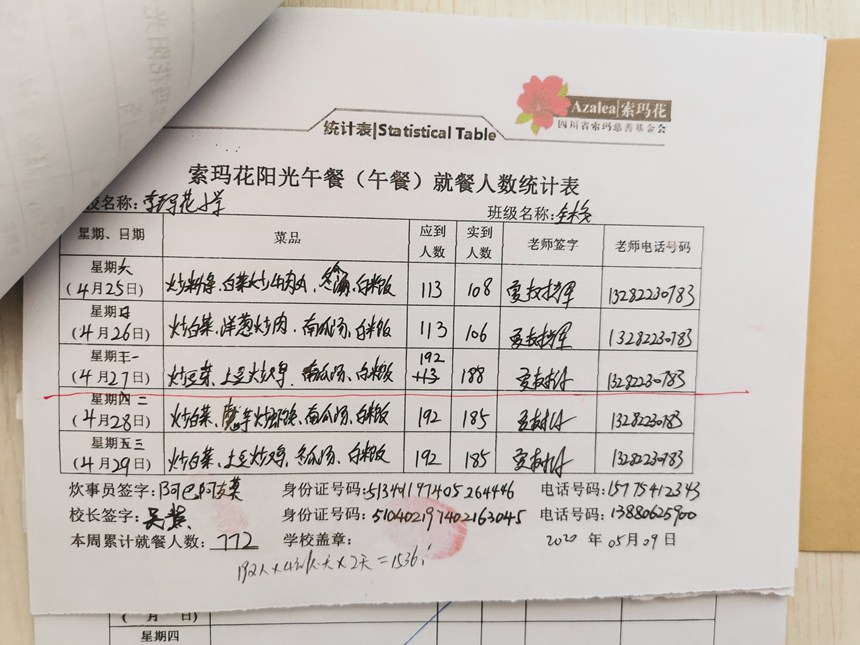 Azalea|索玛花
四川省索玛慈善基金会
统计表|Statistical Table
索玛花阳光午餐（午餐）就餐人数统计表
级名称：索玛花小学 班级名称：全校
星期、日期 菜品 应到人数 实到人数 老师签字 老师电话号码
星期六
(4月25日) 白菜炒牛肉丸、冬瓜汤、白米饭 113 108 13282230783
星期日
(4月26日) 炒白菜、洋葱炒肉、南瓜汤、白米饭 113 106 13282230783
星期一 192
(4月27日) 炒豆芽、土豆炒鸡、南瓜汤、白米饭 113 188 13282230783
星期四 二
(4月28日) 炒白菜、魔芋炒、南瓜汤、白米饭 192 185 13282230783
星期五 三
(4月29日) 炒白菜、土豆炒鸡、冬瓜汤、白米饭 192 185 13282230783
炊事员签字：阿巴阿支莫 身份证号码：513491197405264446 电话号码：15775412343
校长签字： 身份证号码：510402197402163045 电话号码：13880625900
本周累计就餐人数：772 学校盖章： 2020 年 05 月 09 日
192人×4元/人·天×2天=1536
( 月 日)
星期四